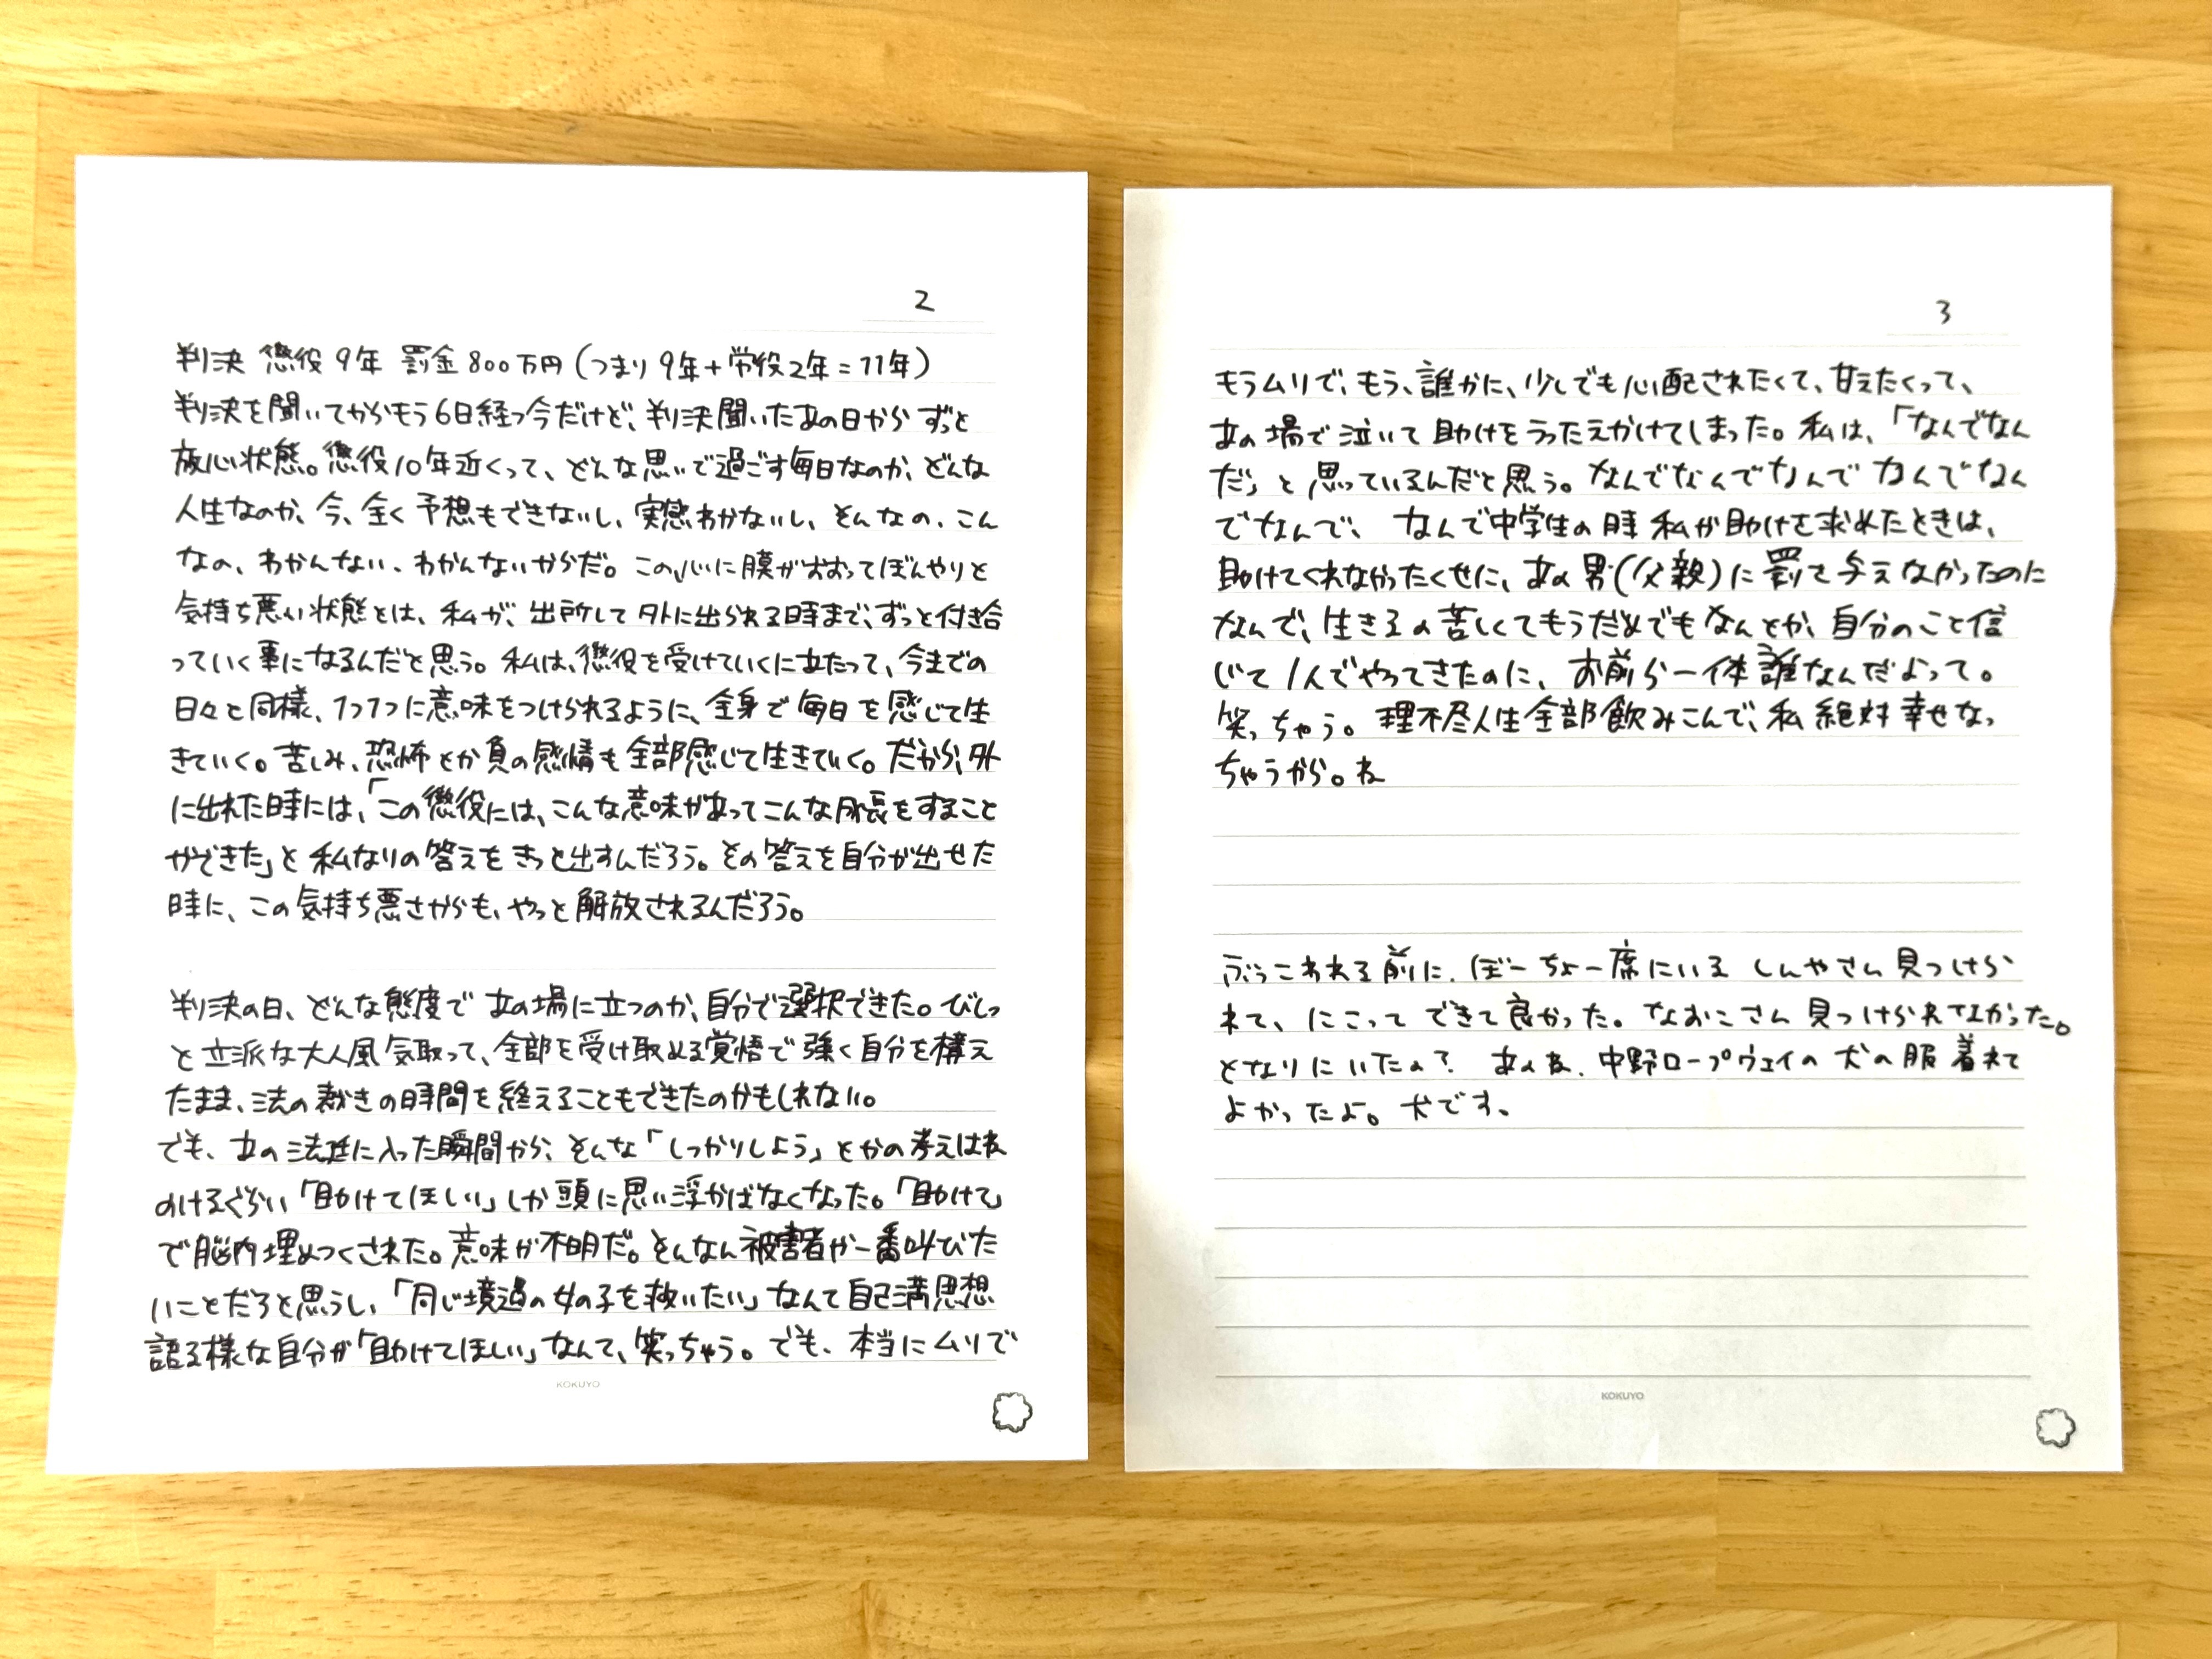 2
判決 懲役9年 罰金800万円(つまり9年+労役2年=11年)
判決を聞いてからもう6日経つ今だけど、判決聞いたあの日からずっと
放心状態。懲役10年近くって、どんな思いで過ごす毎日なのか、どんな
人生なのか、今、全く予想もできないし、実感わかないし、そんなの、こん
なの、わかんない、わかんないからだ。この、心に膜がおおってぼんやりと
気持ち悪い状態とは、私が、出所して外に出られる時まで、ずっと付き合
っていく事になるんだと思う。私は、懲役を受けていくにあたって、今までの
日々と同様、1つ1つに意味をつけられるように、全身で毎日を感じて生
きていく。苦しみ、恐怖とか負の感情も全部感じて生きていく。だから、外
に出れた時には、「この懲役には、こんな意味があってこんな成長をすること
ができた」と私なりの答えをきっと出すんだろう。その答えを自分が出せた
時に、この気持ち悪さからも、やっと解放されるんだろう。
判決の日、どんな態度であの場に立つのか、自分で選択できた。びしっ
と立派な大人風気取って、全部を受け取める覚悟で強く自分を構え
たまま、法の裁きの時間を終えることもできたのかもしれない。
でも、あの法廷に入った瞬間から、そんな「しっかりしよう」とかの考えはね
のけるぐらい「助けてほしい」しか頭に思い浮かばなくなった。「助けて」
で脳内埋めつくされた。意味が不明だ。そんなん被害者が一番叫びた
いことだろと思うし、「同じ境遇の女の子を救いたい」なんて自己満思想
語る様な自分が「助けてほしい」なんて、笑っちゃう。でも、本当にムリで
KOKUYO
3
もうムリで、もう、誰かに、少しでも心配されたくて、甘えたくって、
あの場で泣いて助けをうったえかけてしまった。私は、「なんでなん
だ」と思っているんだと思う。なんでなんでなんでなんでなん
でなんで、なんで中学生の時私が助けを求めたときは、
助けてくれなかったくせに、あの男(父親)に罰を与えなかったのに
なんで、生きるの苦しくてもうだめでもなんとか、自分のこと信
じて1人でやってきたのに、お前ら一体誰なんだよって。
笑っちゃう。理不尽人生全部飲みこんで、私絶対幸せなっ
ちゃうから。ね
ぶっこわれる前に、ぼーちょー席にいるしんやさん見つけら
れて、にこってできて良かった。なおこさん見つけられなかった。
となりにいたの?あのね、中野ロープウェイの犬の服着れて
よかったよ。犬です。
KOKUYO